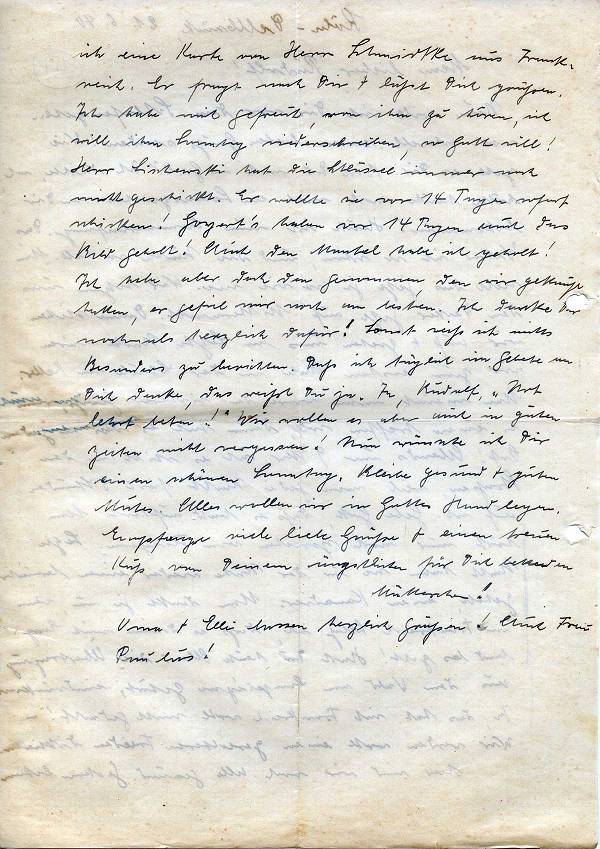 ich eine Karte von Herr Schmidtke aus Frank-
reich. Er fragt nach Dir & läßt Dich grüßen.
Ich habe mich gefreut, von ihm zu hören, ich
will ihm Sonntag wiederschreiben, so Gott will!
Herr Lischewski hat die Schlüssel immer noch
nicht geschickt. Er wollte sie vor 14 Tagen sofort
schicken! Goyert's haben vor 14 Tagen auch das
Bild geholt! Auch den Mantel habe ich geholt!
Ich habe aber doch den genommen, den wir gekauft
hatten, er gefiel mir noch am besten. Ich danke Dir
nochmals herzlich dafür! Sonst weiß ich nichts
Besonders zu berichten. Daß ich täglich im Gebete an
Dich denke, das weißt Du ja. Ja, Rudolf, „Not
lehrt beten!" Wir wollen es aber auch in guten
Zeiten nicht vergessen! Nun wünsche ich Dir
einen schönen Sonntag. Bleibe gesund & guten
Mutes. Alles wollen wir in Gottes Hand legen.
Empfange viele liebe Grüße & einen treuen
Kuß von Deinem ängstlichen für Dich betenden
Mütterchen!
Oma & Elli lassen herzlich grüßen! Auch Frau
Paulus!